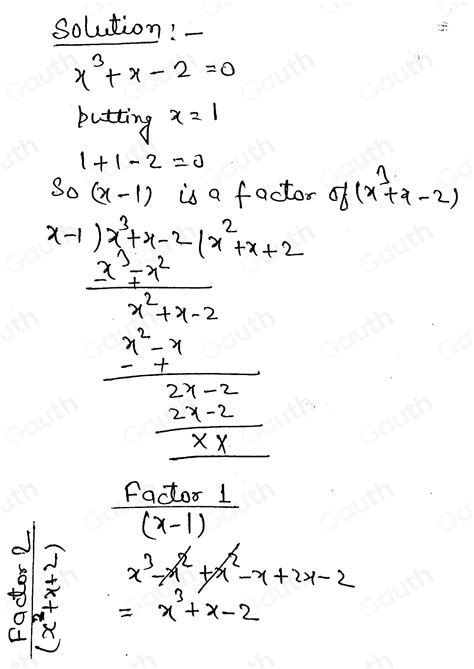 Solution :-
x³ + x - 2 = 0
putting x = 1
1 + 1 - 2 = 0
So (x-1) is a factor of (x³+x-2)
x-1 ) x³+x-2 ( x²+x+2
x³ - x²
- +
x² + x - 2
x² - x
- +
2x - 2
2x - 2
x x
Factor 1
(x-1)
x³ - x² + x² - x + 2x - 2
= x³ + x - 2
Factor 2
(x²+x+2)
Gauth